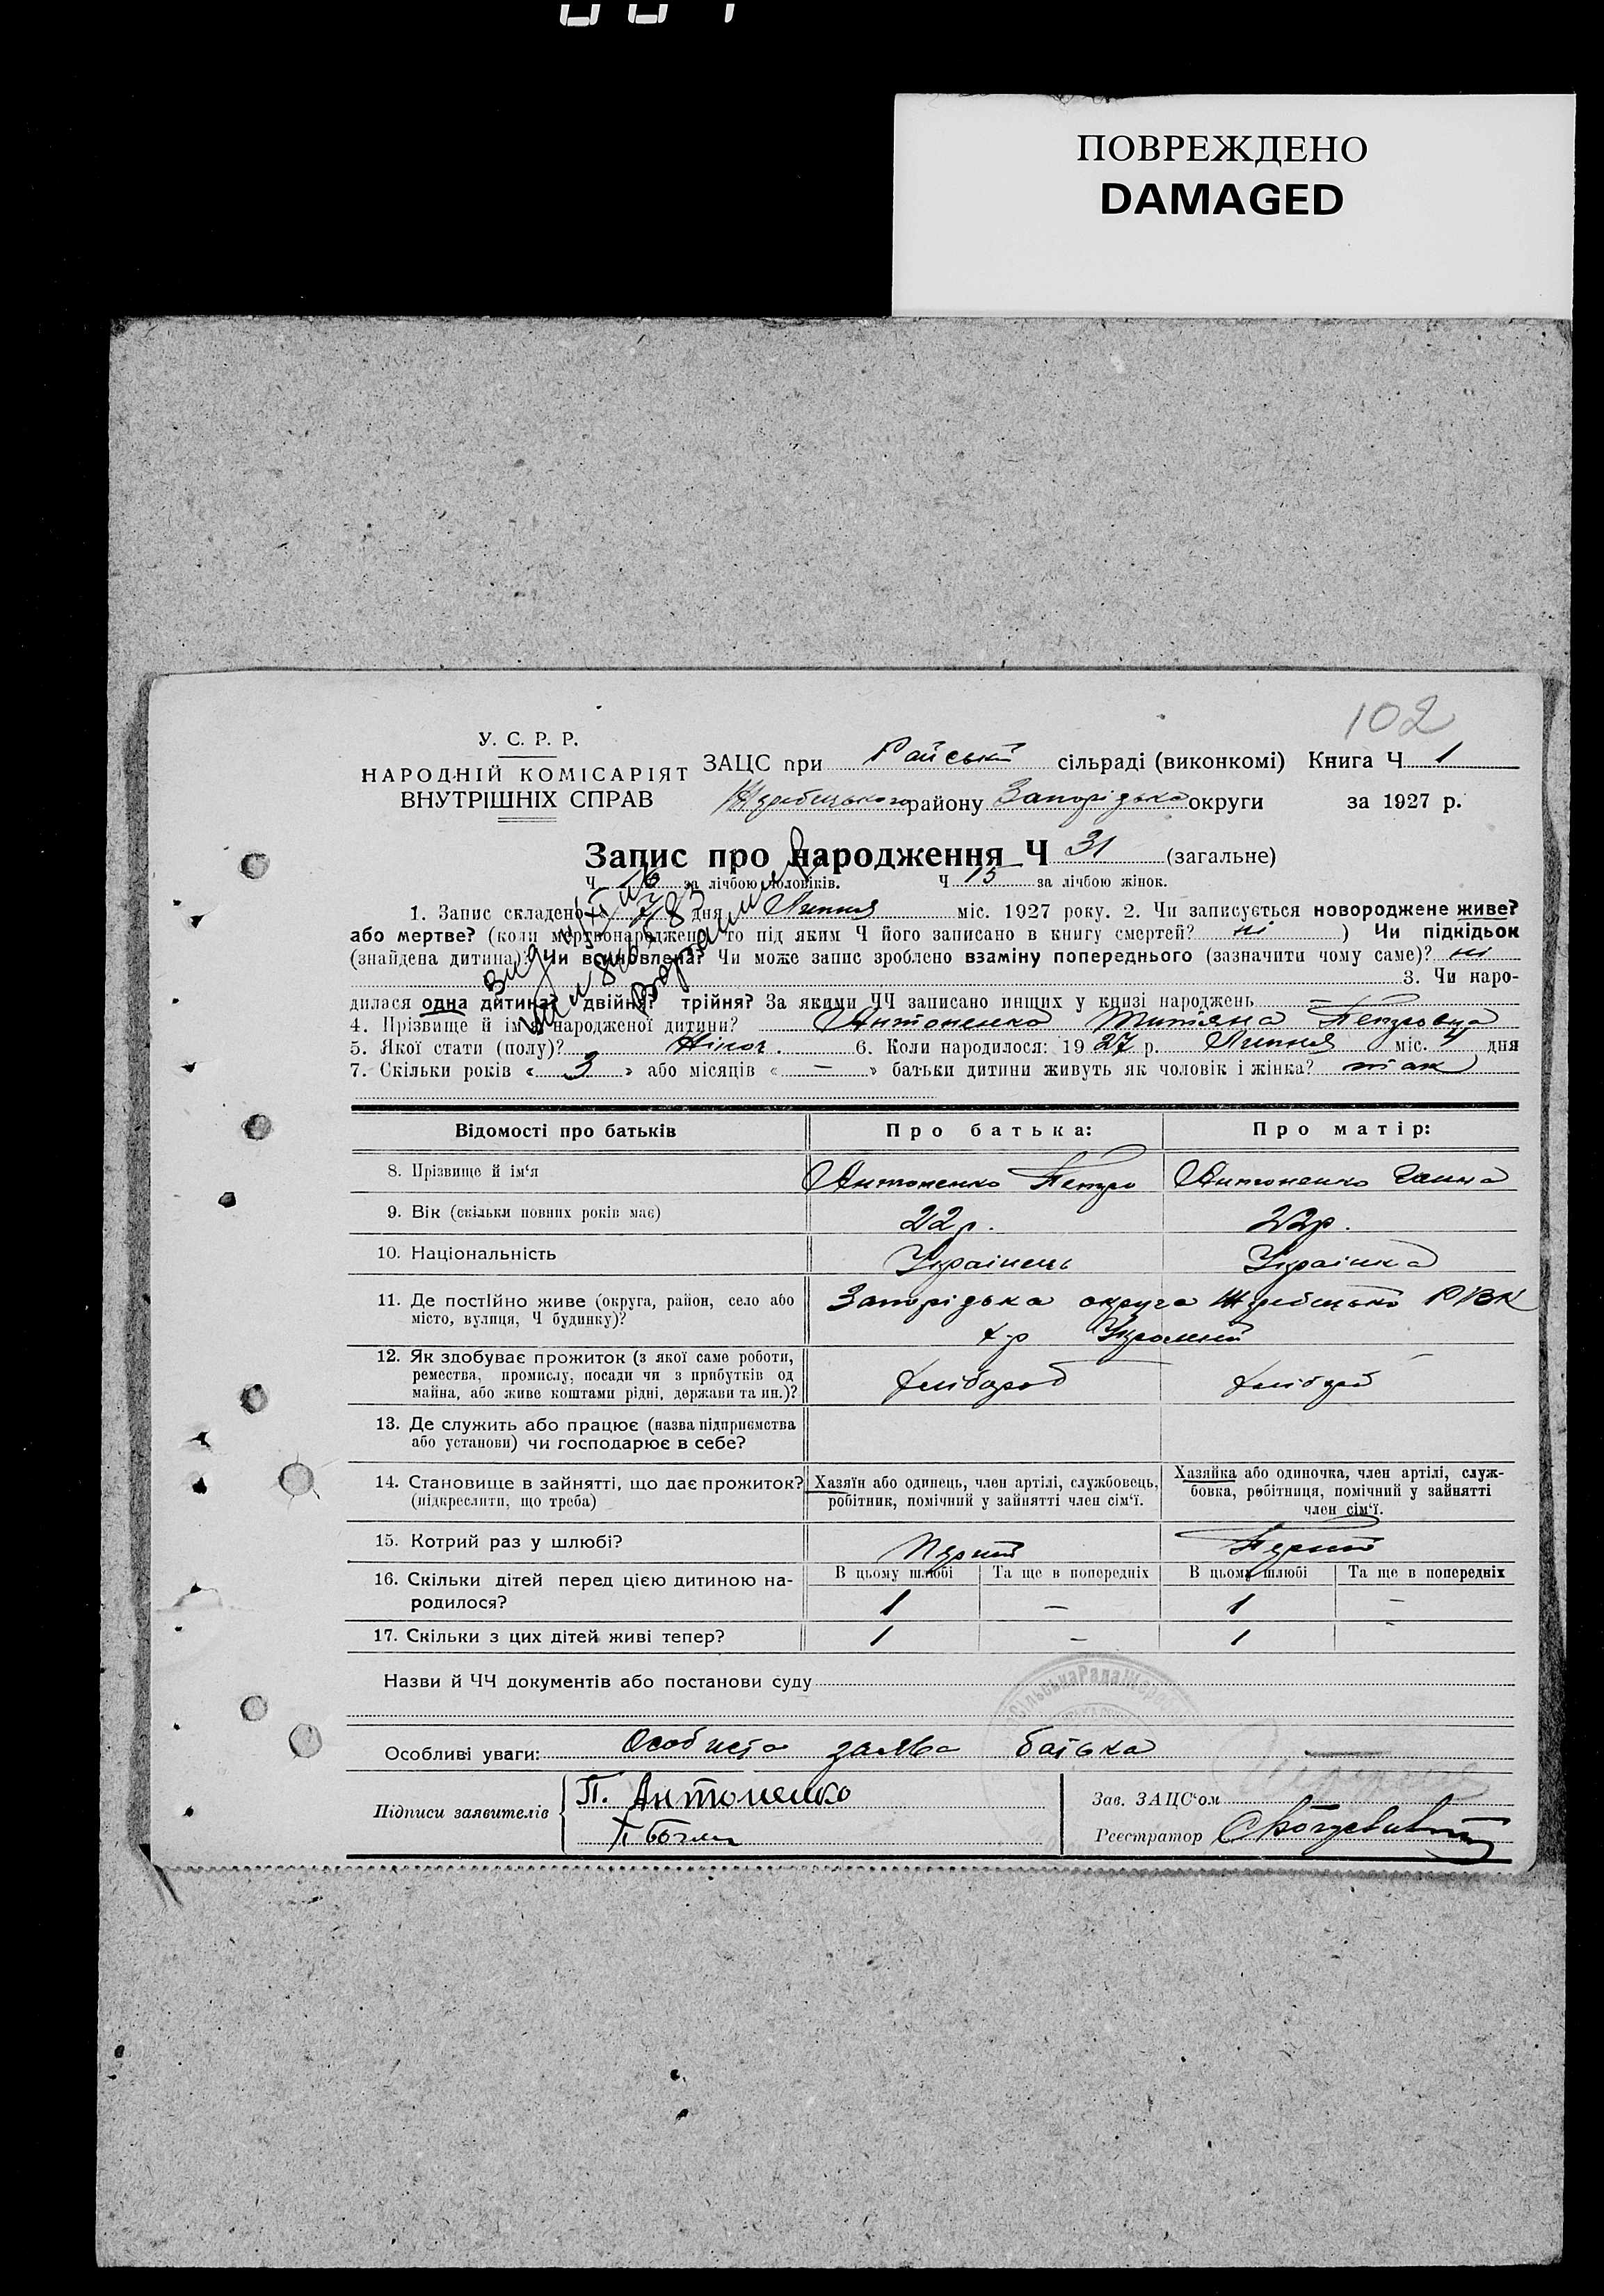 ПОВРЕЖДЕНО
DAMAGED
102
У. С. Р. Р.
НАРОДНІЙ КОМІСАРІЯТ
ВНУТРІШНІХ СПРАВ
ЗАЦС при Райській сільраді (виконкомі) Книга Ч 1
Жеребецького району Запорідька округи за 1927 р.
Запис про народження Ч 31 (загальне)
Ч 16 за лічбою чоловіків. Ч 15 за лічбою жінок.
1. Запис складено 7 дня Липня міс. 1927 року. 2. Чи записується новороджене живе?
або мертве? (коли мертвонароджено, то під яким Ч його записано в книгу смертей? ні ) Чи підкідьок
(знайдена дитина)? Чи всиновлена? Чи може запис зроблено взаміну попереднього (зазначити чому саме)? ні
3. Чи наро-
дилася одна дитина? двійня? трійня? За якими ЧЧ записано инщих у книзі народжень —
4. Прізвище й ім'я народженої дитини? Антоненко Титяна Петровна
5. Якої стати (полу)? Жіноч. 6. Коли народилося: 1927 р. Липня міс. 4 дня
7. Скільки років « 3 » або місяців « — » батьки дитини живуть як чоловік і жінка? так
Відомості про батьків Про батька: Про матір:
8. Прізвище й ім'я Антоненко Петро Антоненко Ганна
9. Вік (скільки повних років має) 22 р. 22 р.
10. Національність Українець Українка
11. Де постійно живе (округа, район, село або
місто, вулиця, Ч будинку)? Запорідька округа Жеребецько РВК
х-р
12. Як здобуває прожиток (з якої саме роботи,
ремества, промислу, посади чи з прибутків од
майна, або живе коштами рідні, держави та ин.)? хлібороб хлібороб
13. Де служить або працює (назва підприємства
або установи) чи господарює в себе?
14. Становище в зайнятті, що дає прожиток?
(підкреслити, що треба)
Хазяїн або одинець, член артілі, службовець,
робітник, помічний у зайнятті член сім'ї.
Хазяйка або одиночка, член артілі, служ-
бовка, робітниця, помічний у зайнятті
член сім'ї.
15. Котрий раз у шлюбі? Перший Перший
16. Скільки дітей перед цією дитиною на-
родилося?
В цьому шлюбі Та ще в попередніх В цьому шлюбі Та ще в попередніх
1 — 1 —
17. Скільки з цих дітей живі тепер? 1 — 1 -
Назви й ЧЧ документів або постанови суду
Особливі уваги: Особиста заява батька
Підписи заявителів П. Антоненко
Зав. ЗАЦС'ом
Реєстратор